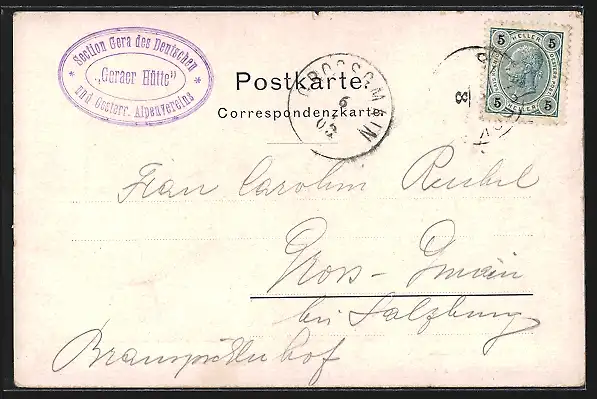 Section Gera des Deutschen
„Geraer Hütte"
und Oesterr. Alpenvereins
5 5
HELLER
5 5
HELLER
Postkarte.
Correspondenzkarte
GROSSGMAIN
6
02
8
Frau Carolin Reichel
Gross-Gmain
bei Salzburg